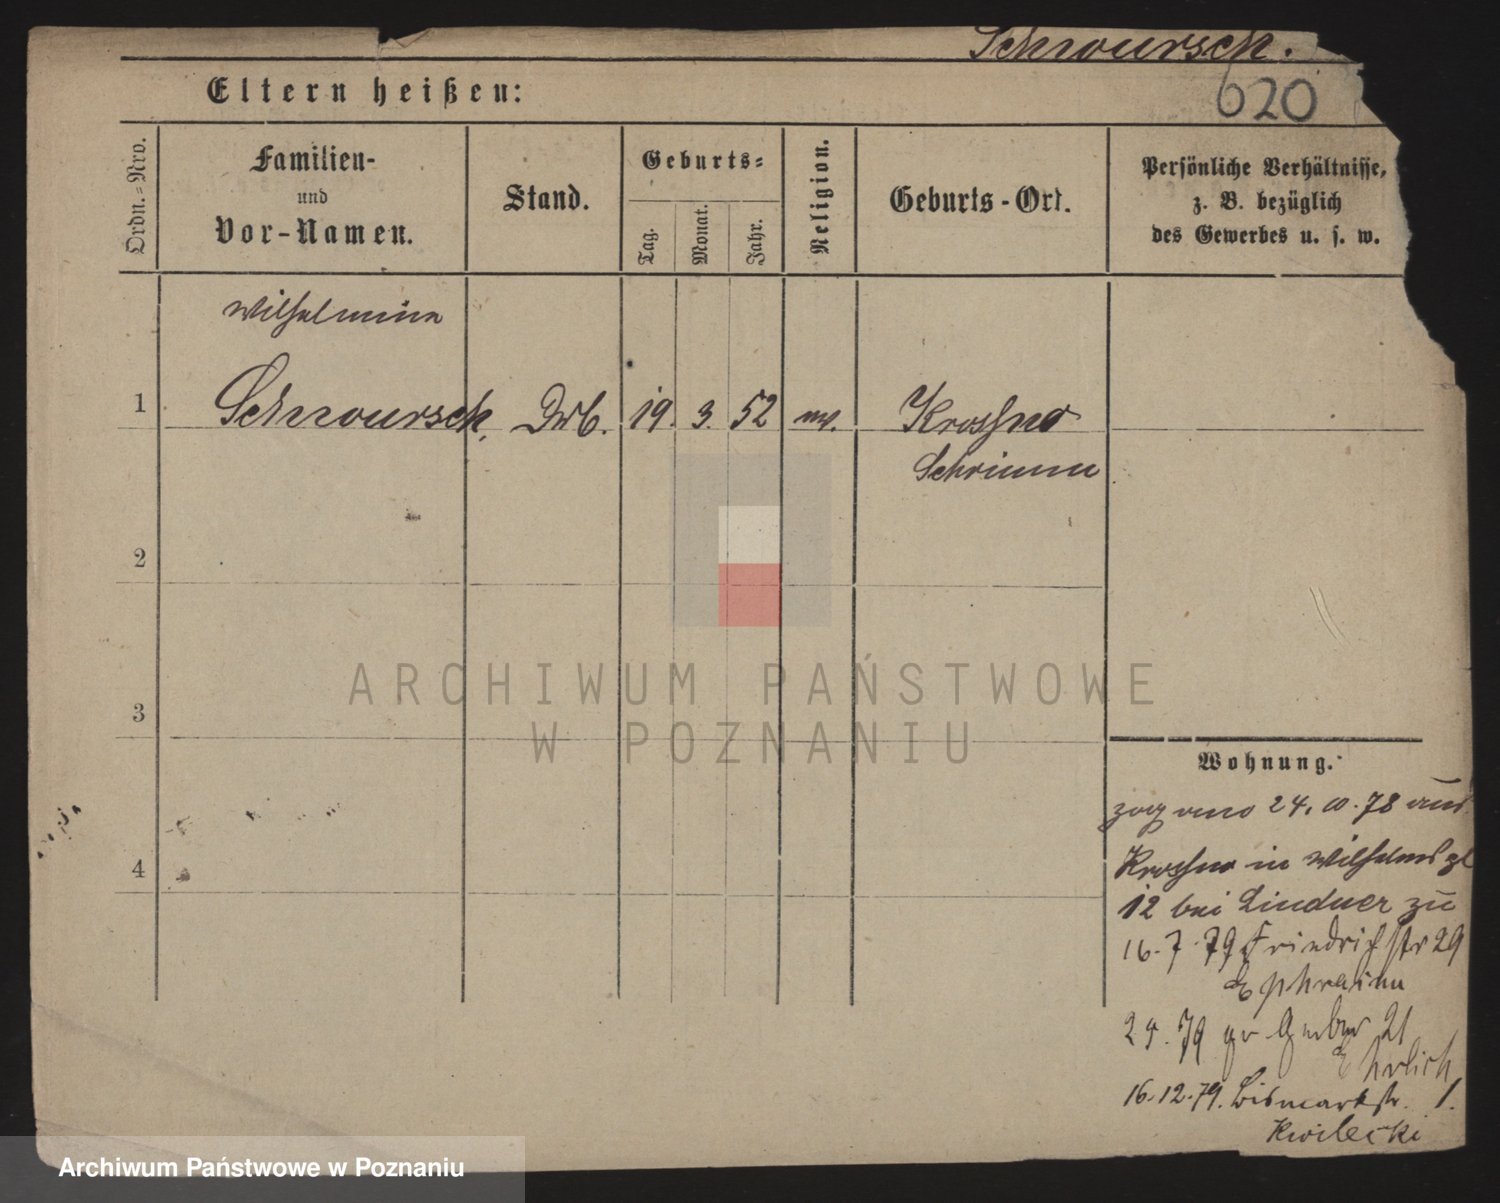 Schwursch.
620
Eltern heißen:
Ordn.=Nro.
Familien-
und
Vor-Namen.
Stand.
Geburts=
Tag.
Monat.
Jahr.
Religion.
Geburts-Ort.
Persönliche Verhältnisse,
z. B. bezüglich
des Gewerbes u. s. w.
Wilhelmine
1 19. 3. 52 Krossno
Schrimm
2
3
4
Wohnung.
zog 24. 10. 78 aus
Krossno in Wilhelmspl
12 bei Lindner zu
16. 7. 79 Friedrichstr 29
Ephraim
79 gr Gerber 21
Ehrlich
16. 12. 79. Bismarkstr. 1.
Kwilecki
ARCHIWUM PAŃSTWOWE
W POZNANIU
Archiwum Państwowe w Poznaniu